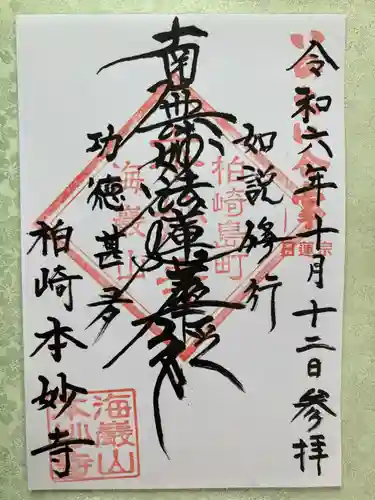 令和六年十月十二日参拝
如説修行
南無妙法蓮華経
功徳甚多
柏崎本妙寺
柏崎島町
海巖山
日蓮宗
海巖山
本妙寺